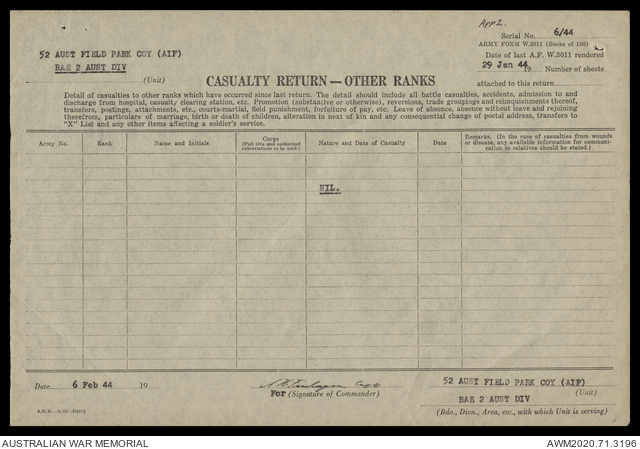 App 2.
Serial No. 6/44
ARMY FORM W.3011 (Books of 100)
52 AUST FIELD PARK COY (AIF)
Date of last A.F. W.3011 rendered
RAE 2 AUST DIV
29 Jan 44 19 Number of sheets
(Unit)
attached to this return
CASUALTY RETURN—OTHER RANKS
Detail of casualties to other ranks which have occurred since last return. The detail should include all battle casualties, accidents, admission to and
discharge from hospital, casualty clearing station, etc. Promotion (substantive or otherwise), reversions, trade groupings and relinquishments thereof,
transfers, postings, attachments, etc., courts-martial, field punishment, forfeiture of pay, etc. Leave of absence, absence without leave and rejoining
therefrom, particulars of marriage, birth or death of children, alteration in next of kin and any consequential change of postal address, transfers to
"X" List and any other items affecting a soldier's service.
Army No.
Rank
Name and Initials
Corps
(Full title and authorized
abbreviations to be used.)
Nature and Date of Casualty
Date
Remarks. (In the case of casualties from wounds
or disease, any available information for communi-
cation to relatives should be stated.)
NIL.
Date 6 Feb 44 19
Capt
For (Signature of Commander)
52 AUST FIELD PARK COY (AIF)
(Unit)
RAE 2 AUST DIV
(Bde., Divn., Area, etc., with which Unit is serving)
AUSTRALIAN WAR MEMORIAL
AWM2020.71.3196